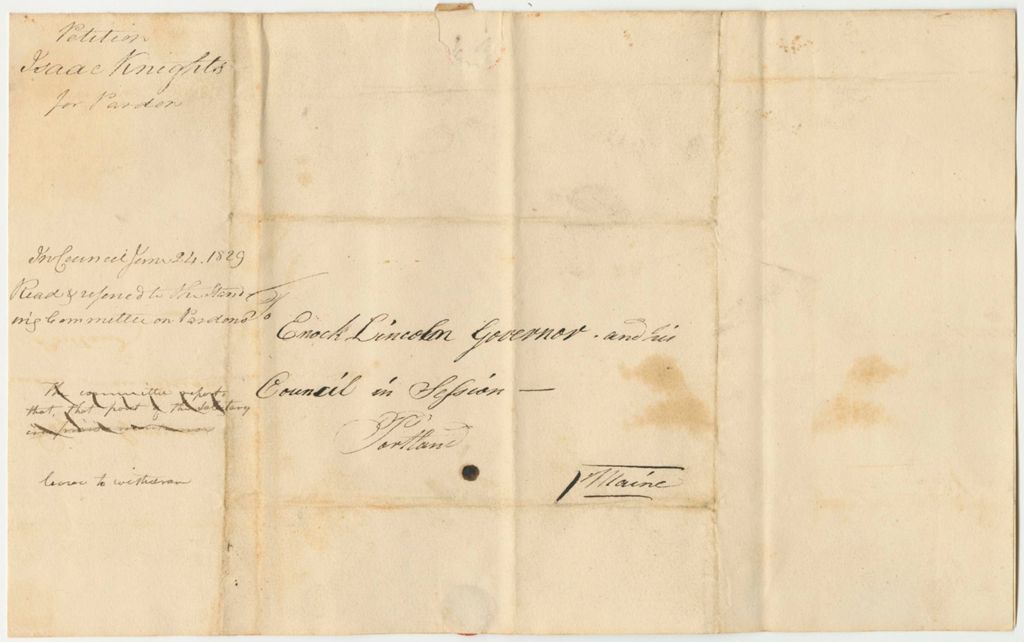 Petition
Isaac Knights
for Pardon
In Council Jan 24. 1829
Read & referred to the Stand
ing Committee on Pardons
To
Enock Lincoln Governor. and his
Council in Session —
Portland
Maine
The committee report,
that, that part of the
leave to withdraw